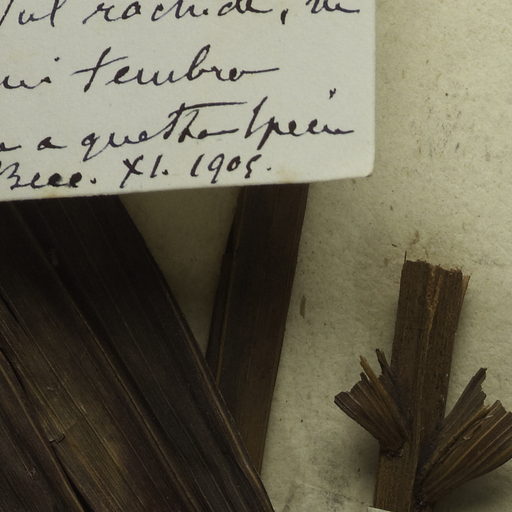 rachide, m
mi tembra
a questa Specie
Becc. XI. 1905.